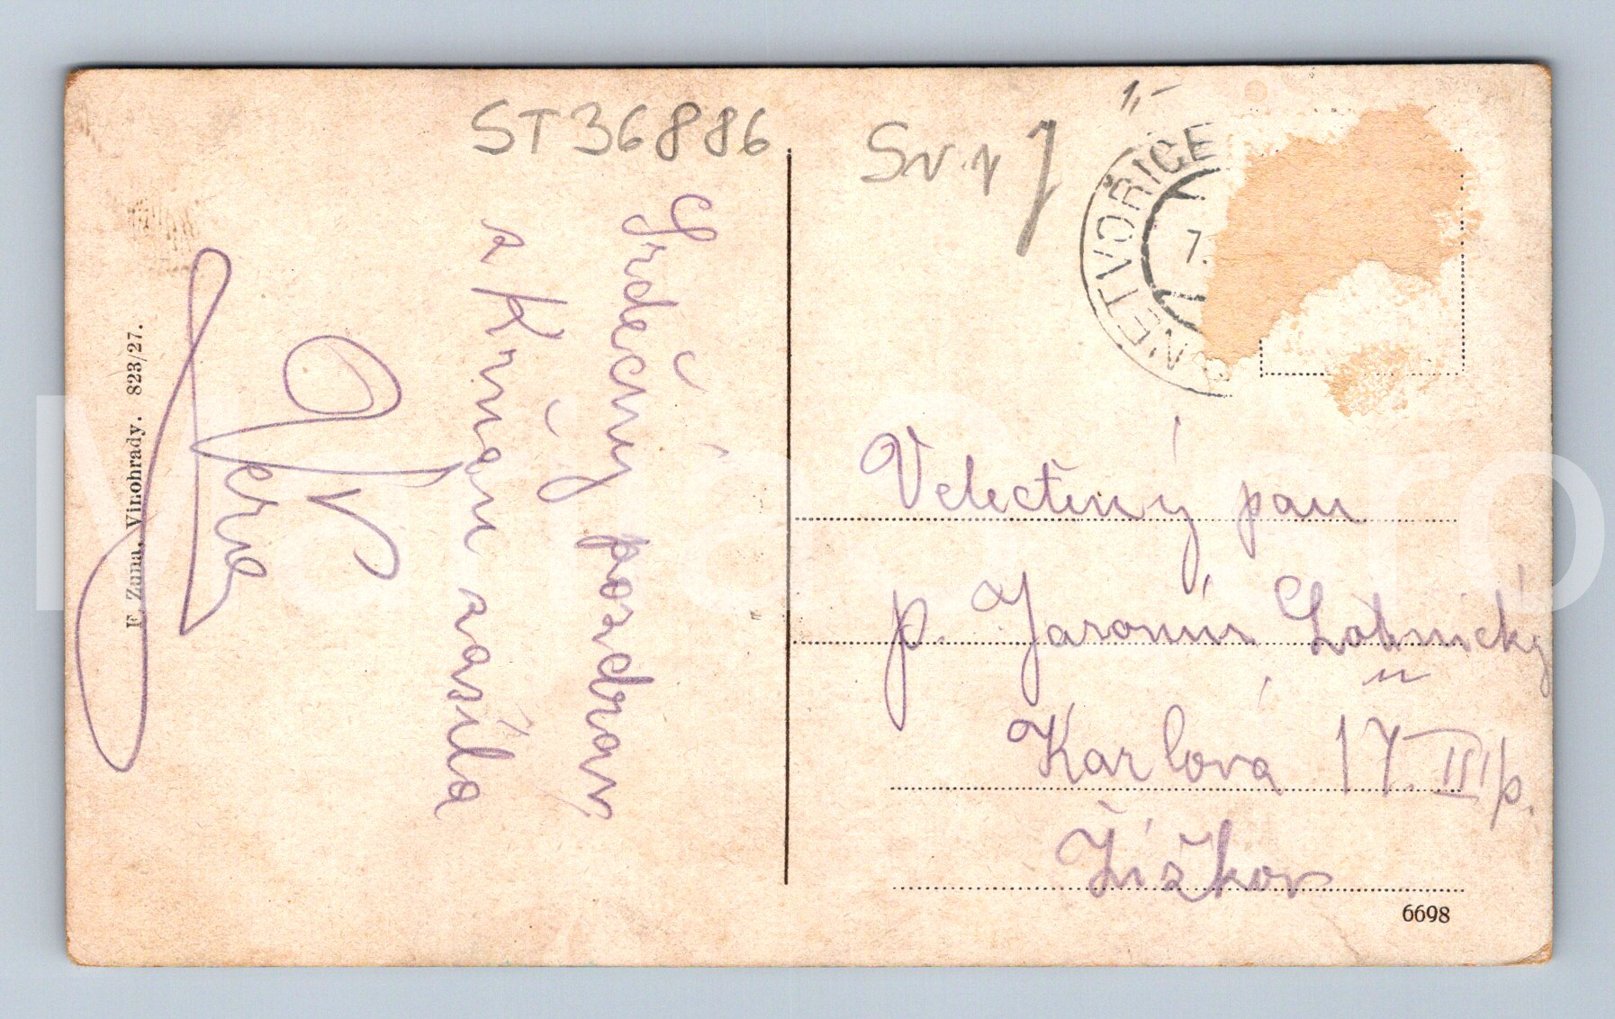 ST36886
Srdečný pozdrav
z Krňan zasílá
Věra
F. Zuna, Vinohrady. 823/27.
1,-
NETVOŘICE
7.
Velectěný pan
p. Jaromír Lobnický
Karlova 17. III p.
Žižkov
6698